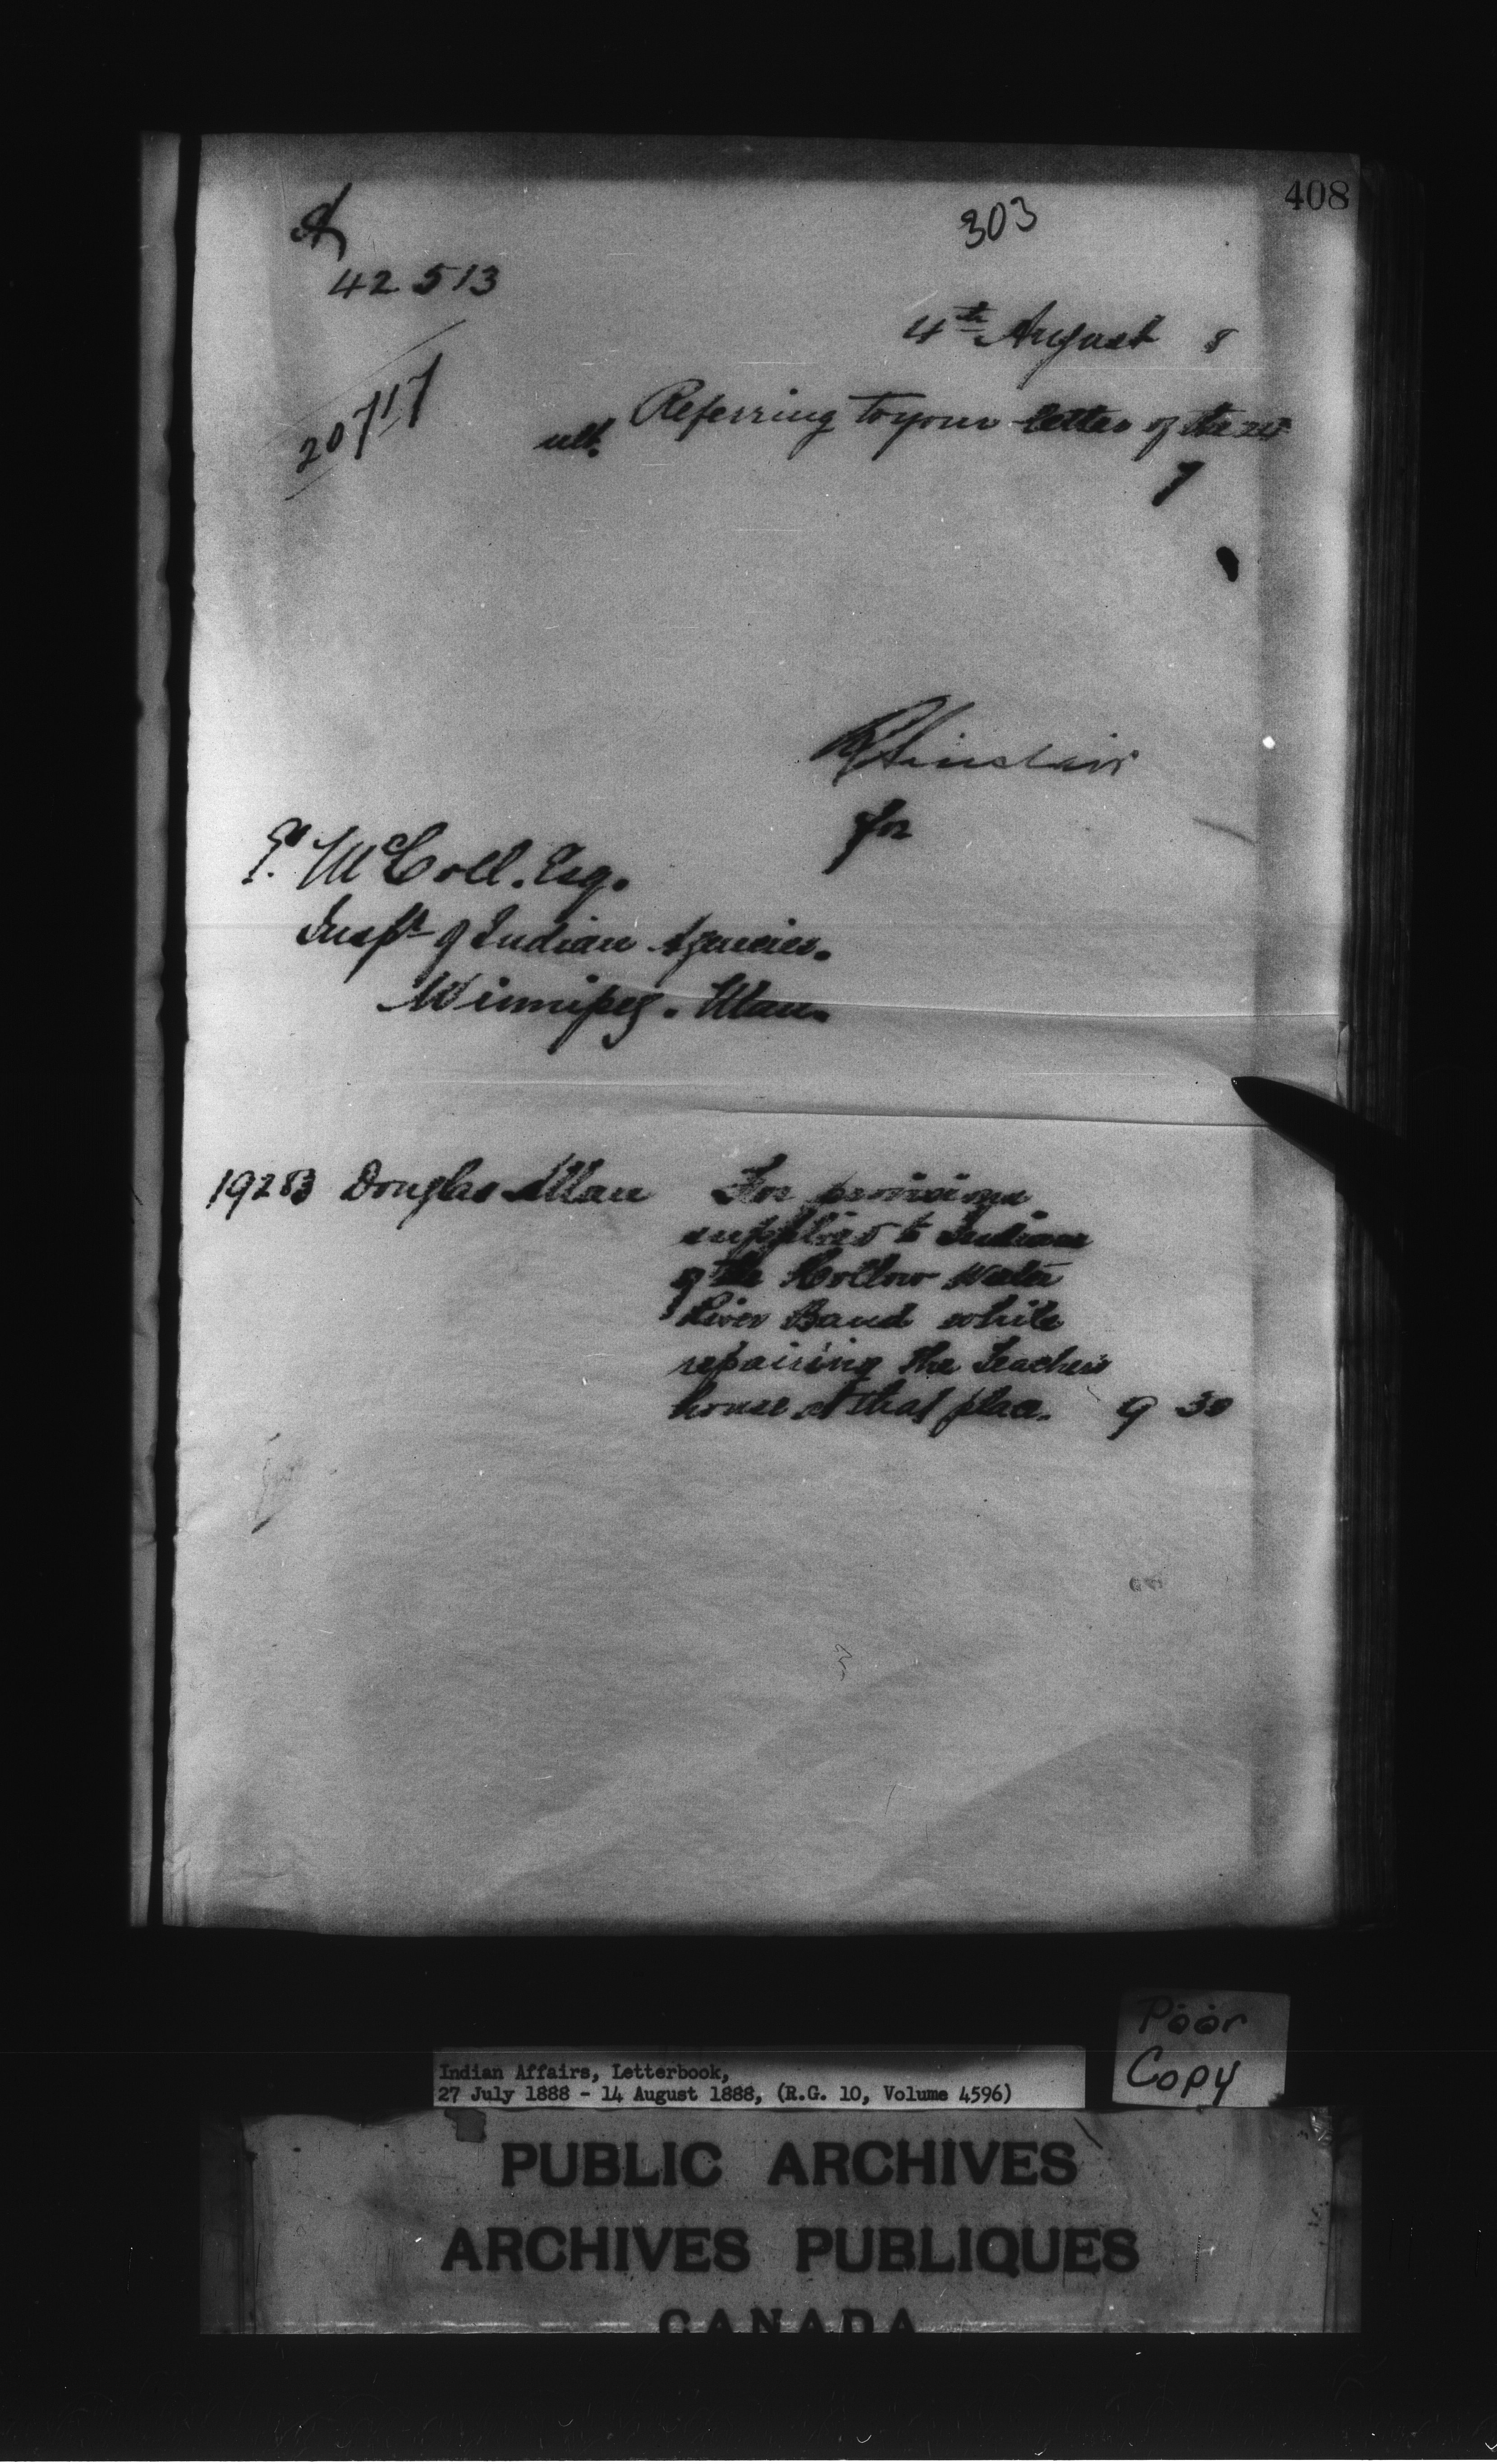 408
A
303
42513
4th August 8
20717
Referring to your letter of the
ult.
7
R Sinclair
for
E. McColl. Esq.
Inspr of Indian Agencies.
Winnipeg. Man.
19283 Douglas Allan For provisions
supplied to Indians
of the Hollow Water
River Band while
repairing the Teachers
house at that place. 9 30
Poor
Copy
Indian Affairs, Letterbook,
27 July 1888 - 14 August 1888, (R.G. 10, Volume 4596)
PUBLIC ARCHIVES
ARCHIVES PUBLIQUES
CANADA